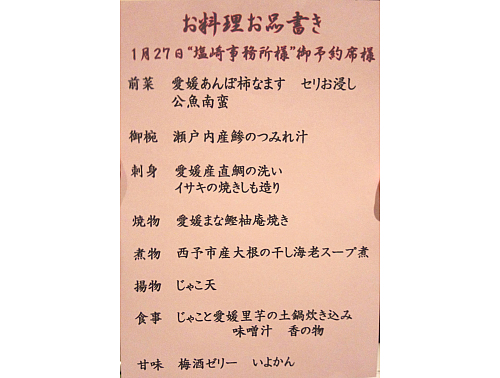 お料理お品書き
1月27日“塩崎事務所様”御予約席様
前菜 愛媛あんぽ柿なます セリお浸し
公魚南蛮
御椀 瀬戸内産鯵のつみれ汁
刺身 愛媛産直鯛の洗い
イサキの焼きしも造り
焼物 愛媛まな鰹柚庵焼き
煮物 西予市産大根の干し海老スープ煮
揚物 じゃこ天
食事 じゃこと愛媛里芋の土鍋炊き込み
味噌汁 香の物
甘味 梅酒ゼリー いよかん